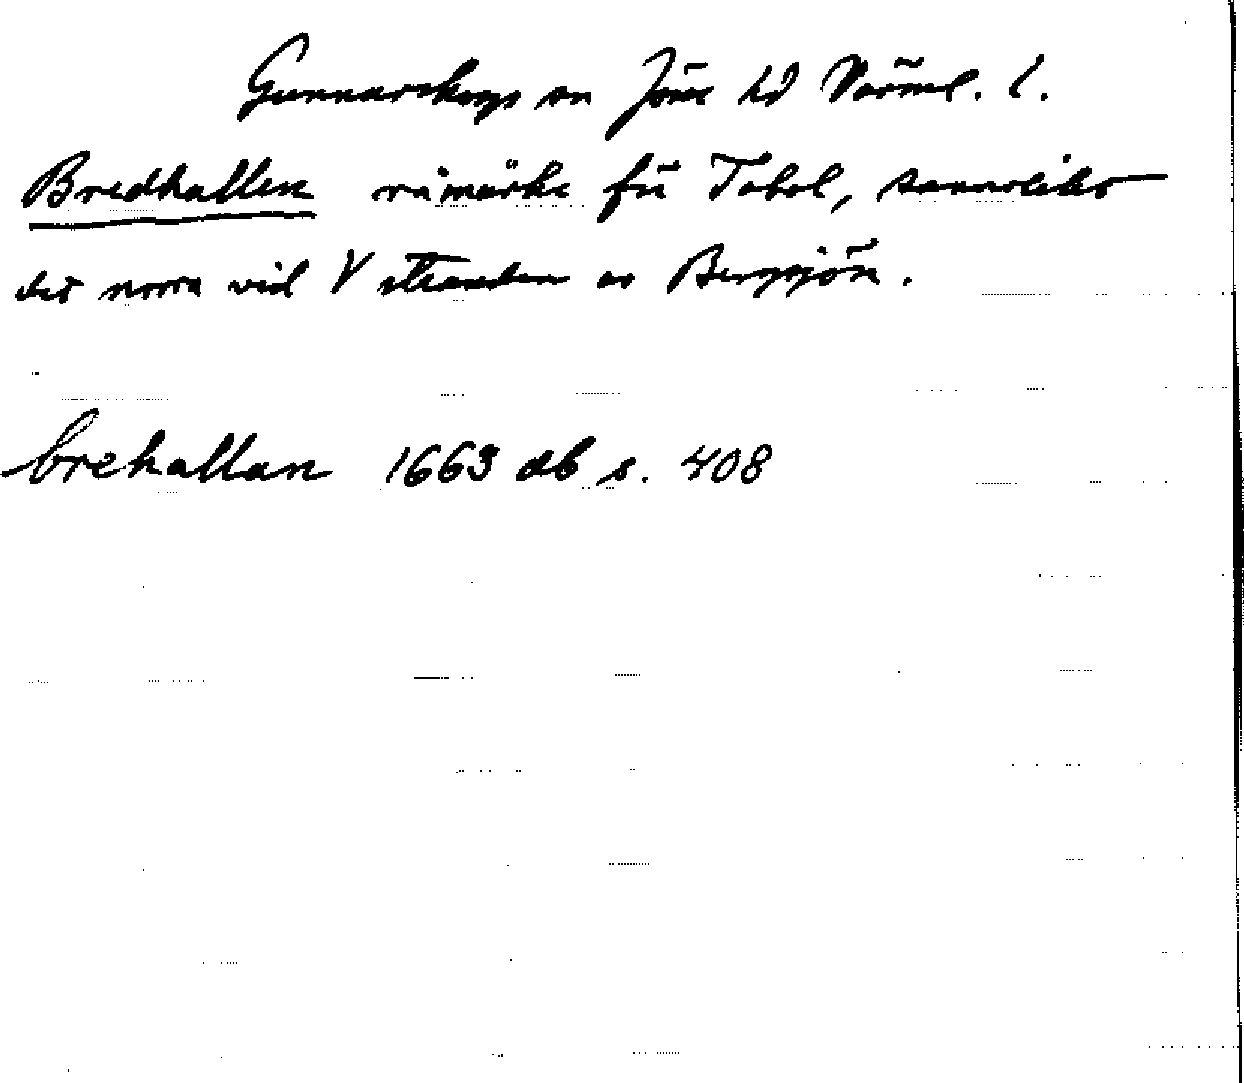 Gunnarskogs sn Jösse hd Värml. l.
Bredhallen råmärke för Tobol, sannolikt
det norra vid V stranden av Bergsjön.
brehallan 1663 db s. 408